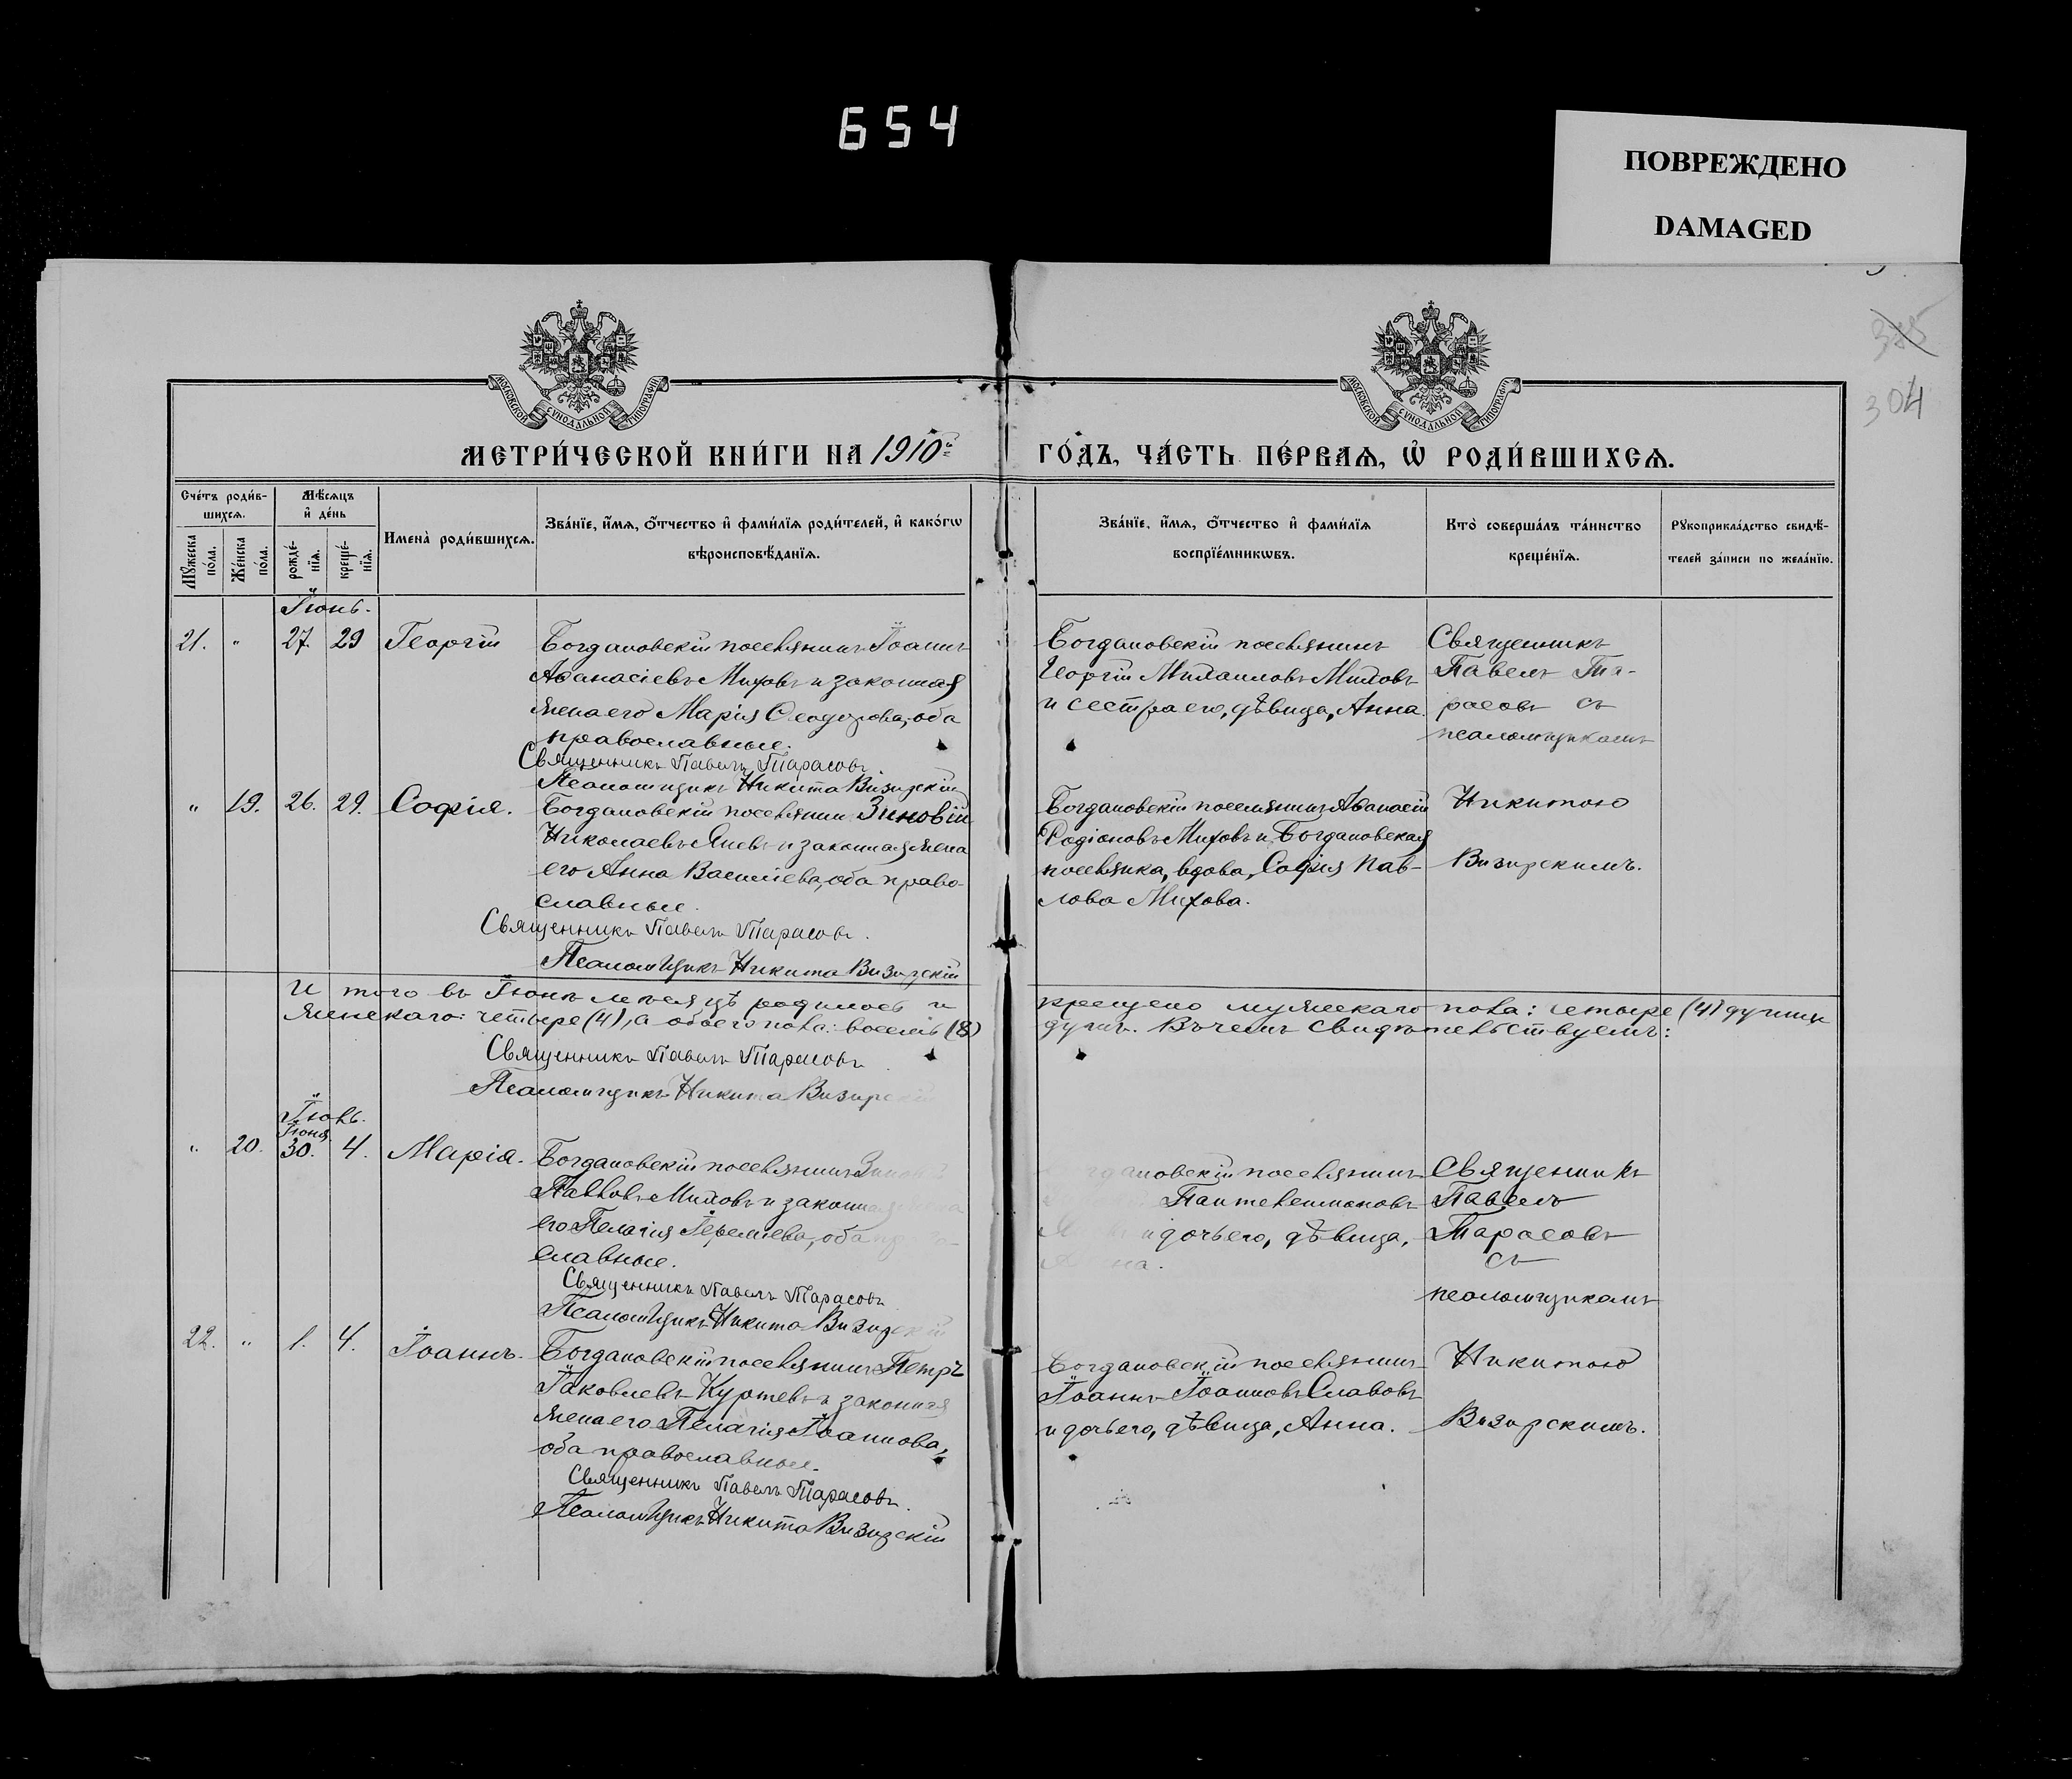 654
ПОВРЕЖДЕНО
DAMAGED
304
МОСКОВСКОЙ СѴНОДАЛЬНОЙ ТИПОГРАФІИ
МОСКОВСКОЙ СѴНОДАЛЬНОЙ ТИПОГРАФІИ
МЕТРИ́ЧЕСКОЙ КНИ́ГИ НА 1910й
ГО́ДЪ, ЧА́СТЬ ПЕ́РВАѦ, Ѡ҆ РОДИ́ВШИХСѦ.
Сче́тъ роди́в-
шихсѧ.
Мѣ́сѧцъ
и҆ де́нь
Мꙋ́жеска по́ла.
Же́нска по́ла.
рожде́-нїѧ.
креще́-нїѧ.
Имена̀ роди́вшихсѧ.
Зва́нїе, и҆́мѧ, ѻ҆́тчество и҆ фами́лїѧ роди́телей, и҆ како́гѡ
вѣроисповѣ́данїѧ.
Зва́нїе, и҆́мѧ, ѻ҆́тчество и҆ фами́лїѧ
воспрїе́мникѡвъ.
Кто̀ соверша́лъ та́инство
креще́нїѧ.
Рꙋкоприкла́дство свидѣ́-
телей за́писи по жела́нїю.
Іюнь.
21. " 27. 29 Георгій
Богдановскій поселянинъ Іоаннъ
Аѳанасіевъ Миховъ и законная
жена его Марія Ѳеодорова, оба
православные.
Священникъ Павелъ Тарасовъ
Псаломщикъ Никита Визирскій
Богдановскій поселянинъ
Георгій Михаиловъ Миховъ
и сестра его, дѣвица, Анна.
Священникъ
Павелъ Та-
расовъ съ
псаломщикомъ
" 19. 26. 29. Софія.
Богдановскій поселянинъ Зиновій
Николаевъ Яневъ и законная жена
его Анна Василіева, оба право-
славные.
Священникъ Павелъ Тарасовъ.
Псаломщикъ Никита Визирскій
Богдановскій поселянинъ Аѳанасій
Родіоновъ Миховъ и Богдановская
поселянка, вдова, Софія Пав-
лова Михова.
Никитою
Визирскимъ.
И того въ Іюнѣ мѣсяцѣ родилось и
крещено мужескаго пола: четыре (4) души и
женскаго: четыре (4), а обоего пола: восемь (8)
душъ. Въ чемъ свидѣтельствуемъ:
Священникъ Павелъ Тарасовъ
Псаломщикъ Никита Визирскій
Іюль.
Іюня
" 20. 30. 4. Марія.
Богдановскій поселянинъ
Павловъ Миховъ и законная жена
его Пелагія Іереміева, оба право-
славные.
Священникъ Павелъ Тарасовъ
Псаломщикъ Никита Визирскій
Богдановскій поселянинъ
Пантелеимоновъ
и дочь его, дѣвица,
Священникъ
Павелъ
Тарасовъ
съ
псаломщикомъ
22. " 1. 4. Іоаннъ.
Богдановскій поселянинъ Петръ
Іаковлевъ Куртевъ и законная
жена его Пелагія Іоаннова,
оба православные.
Священникъ Павелъ Тарасовъ.
Псаломщикъ Никита Визирскій
Богдановскій поселянинъ
Іоаннъ Іоанновъ Славовъ
и дочь его, дѣвица, Анна.
Никитою
Визирскимъ.